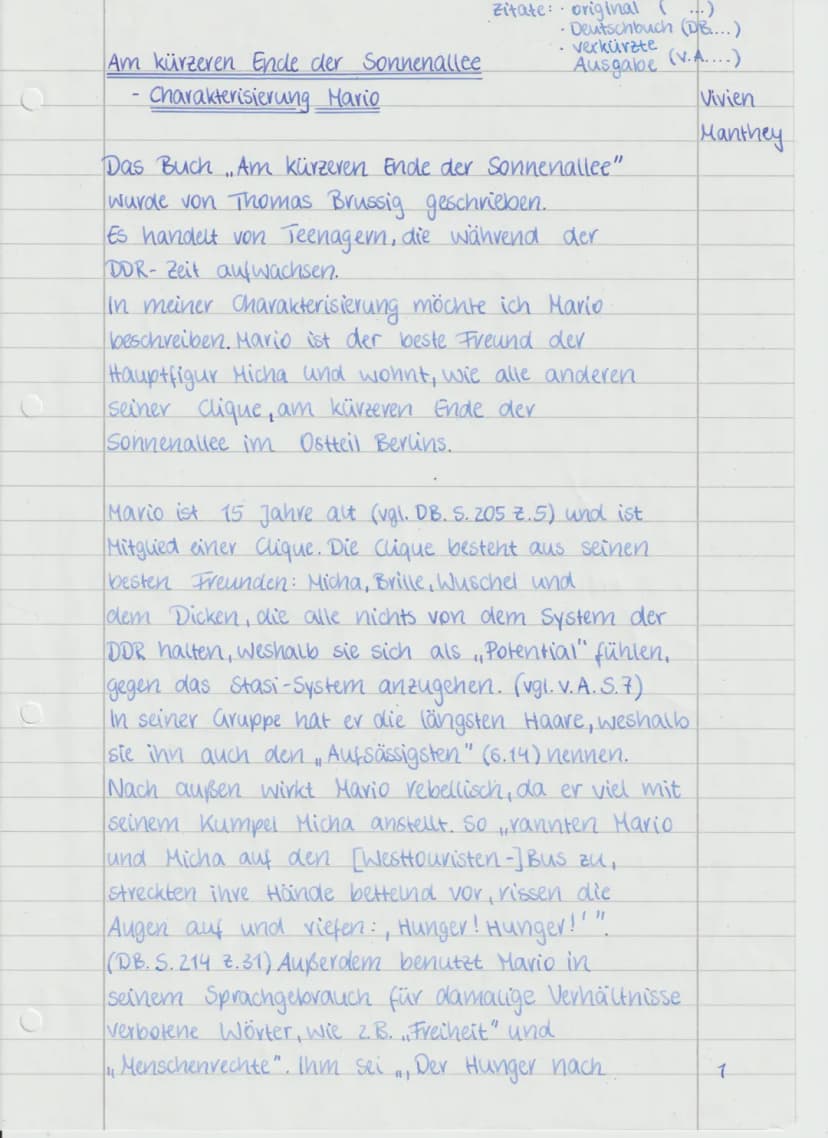 Zitate: · original ( ...)
· Deutschbuch (DB...)
· verkürzte
Ausgabe (v.A....)
Am kürzeren Ende der Sonnenallee
- Charakterisierung Mario
Vivien
Manthey
Das Buch „Am kürzeren Ende der Sonnenallee"
wurde von Thomas Brussig geschrieben.
Es handelt von Teenagern, die während der
DDR-Zeit aufwachsen.
In meiner Charakterisierung möchte ich Mario
beschreiben. Mario ist der beste Freund der
Hauptfigur Micha und wohnt, wie alle anderen
seiner Clique, am kürzeren Ende der
Sonnenallee im Ostteil Berlins.
Mario ist 15 Jahre alt (vgl. DB. S. 205 Z.5) und ist
Mitglied einer Clique. Die Clique besteht aus seinen
besten Freunden: Micha, Brille, Wuschel und
dem Dicken, die alle nichts von dem System der
DDR halten, weshalb sie sich als „Potential" fühlen,
gegen das Stasi-System anzugehen. (vgl. v.A. S.7)
In seiner Gruppe hat er die längsten Haare, weshalb
sie ihn auch den „Aufsässigsten" (S.14) nennen.
Nach außen wirkt Mario rebellisch, da er viel mit
seinem Kumpel Micha anstellt. So „rannten Mario
und Micha auf den [Westtouristen-]Bus zu,
streckten ihre Hände bettelnd vor, rissen die
Augen auf und riefen: ‚Hunger! Hunger!'".
(DB. S. 214 Z.31) Außerdem benutzt Mario in
seinem Sprachgebrauch für damalige Verhältnisse
verbotene Wörter, wie z.B. „Freiheit" und
„Menschenrechte". Ihm sei „‚Der Hunger nach
1